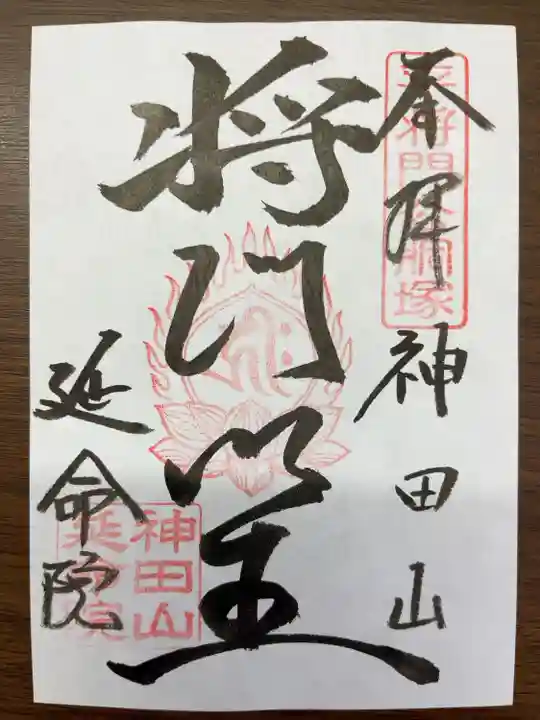 奉拝
神田山
将門堂
延命院
平将門公胴塚
神田山
延命院